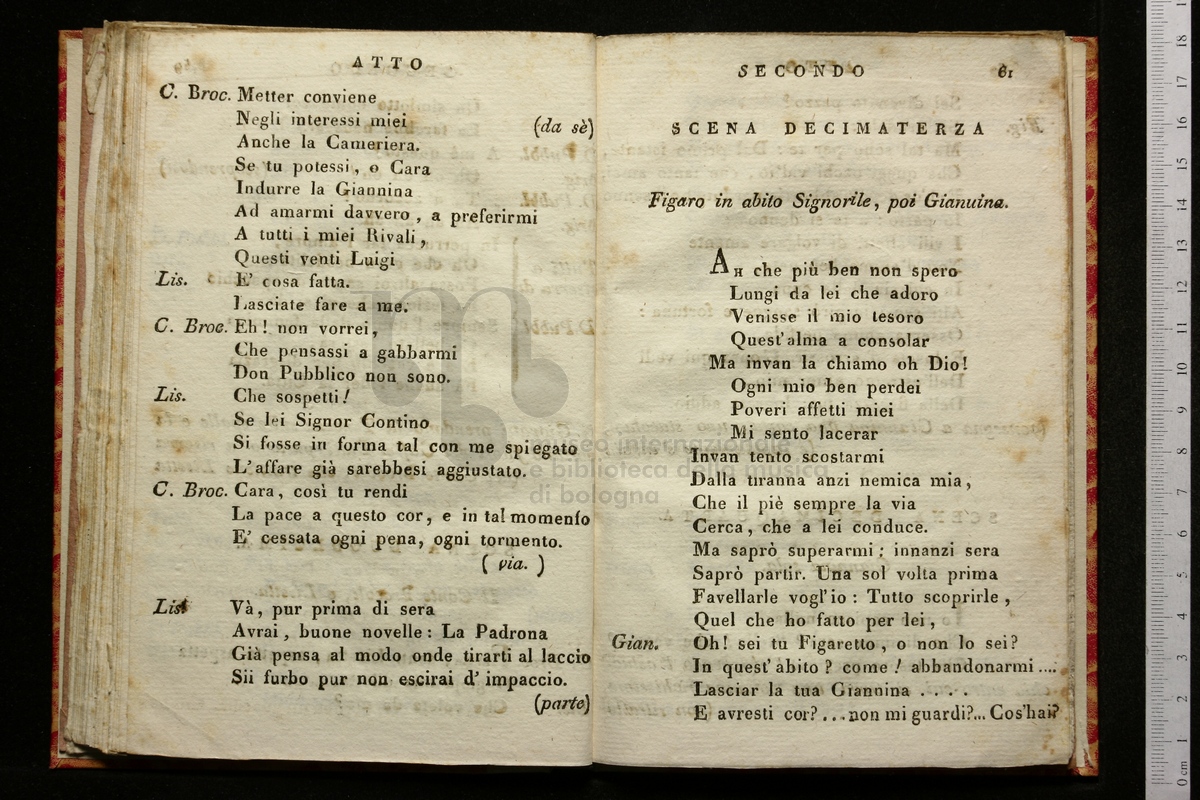 ATTO
C. Broc. Metter conviene
Negli interessi miei (da sè)
Anche la Cameriera.
Se tu potessi, o Cara
Indurre la Giannina
Ad amarmi davvero, a preferirmi
A tutti i miei Rivali,
Questi venti Luigi
Lis. E' cosa fatta.
Lasciate fare a me.
C. Broc. Eh! non vorrei,
Che pensassi a gabbarmi
Don Pubblico non sono.
Lis. Che sospetti!
Se lei Signor Contino
Si fosse in forma tal con me spiegato
L'affare già sarebbesi aggiustato.
C. Broc. Cara, così tu rendi
La pace a questo cor, e in tal momento
E' cessata ogni pena, ogni tormento.
( via. )
Lis. Và, pur prima di sera
Avrai, buone novelle: La Padrona
Già pensa al modo onde tirarti al laccio
Sii furbo pur non escirai d'impaccio.
(parte)
SECONDO 61
SCENA DECIMATERZA
Figaro in abito Signorile, poi Gianuina.
AH che più ben non spero
Lungi da lei che adoro
Venisse il mio tesoro
Quest'alma a consolar
Ma invan la chiamo oh Dio!
Ogni mio ben perdei
Poveri affetti miei
Mi sento lacerar
Invan tento scostarmi
Dalla tiranna anzi nemica mia,
Che il piè sempre la via
Cerca, che a lei conduce.
Ma saprò superarmi; innanzi sera
Saprò partir. Una sol volta prima
Favellarle vogl'io: Tutto scoprirle,
Quel che ho fatto per lei,
Gian. Oh! sei tu Figaretto, o non lo sei?
In quest'abito? come! abbandonarmi ....
Lasciar la tua Giannina . . . .
E avresti cor? ... non mi guardi?... Cos'hai?
museo internazionale
e biblioteca della musica
di bologna
0 cm 1 2 3 4 5 6 7 8 9 10 11 12 13 14 15 16 17 18